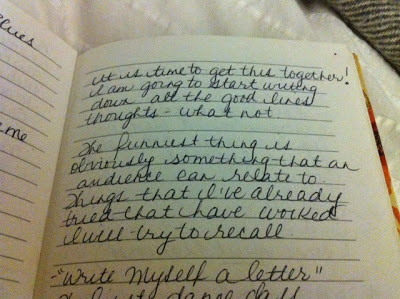 clues
me
It is time to get this together!
I am going to start writing
down all the good lines
thoughts - what not
The funniest thing is
obviously something that an
audience can relate to.
Things that I've already
tried that have worked
I will try to recall
- "Write Myself a letter"
dance class